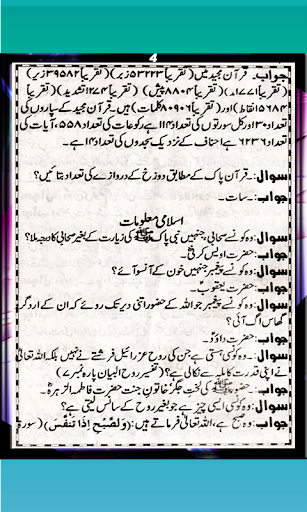 4
جواب۔ قرآن مجید میں (تقریباً ۵۳۲۲۳ زبر) (تقریباً ۳۹۵۸۲ زیر)
(تقریباً ۱۷۷۱ مد) (تقریباً ۸۸۰۴ پیش) (تقریباً ۱۲۷۴ تشدید) (تقریباً
۱۵۶۸۴ نقاط) اور (تقریباً ۸۰۹۰۶ کلمات) ہیں۔ قرآن مجید کے سپاروں کی
تعداد ۳۰ اور کل سورتوں کی تعداد ۱۱۴ ہے رکوعات کی تعداد ۵۵۸، آیات کی
تعداد ۶۲۳۶ ہے احناف کے نزدیک سجدوں کی تعداد ۱۴ ہے۔
سوال:۔ قرآن پاک کے مطابق دوزخ کے دروازے کی تعداد بتائیں؟
جواب:۔ سات۔
اسلامی معلومات
سوال:۔ وہ کونسے صحابی، جنہیں نبی پاک ﷺ کی زیارت کے بغیر صحابی کا درجہ ملا؟
جواب:۔ حضرت اویس قرنیؓ۔
سوال:۔ وہ کونسے پیغمبر جنہیں خون کے آنسو آئے؟
جواب:۔ حضرت یعقوبؑ۔
سوال:۔ وہ کونسے پیغمبر جو اللہ کے حضور اتنی دیر تک روئے کہ ان کے ارد گرد
گھاس اگ آئی؟
جواب:۔ حضرت داؤدؑ۔
سوال:۔ وہ کونسی ہستی ہے جن کی روح عزرائیل فرشتے نے نہیں بلکہ اللہ تعالیٰ
نے اپنی قدرت کاملہ سے نکالی ہے؟ (تفسیر روح البیان پارہ نمبر ۷)
جواب:۔ حضور ﷺ کی لخت جگر خاتون جنت حضرت فاطمۃ الزہرہؓ۔
سوال:۔ وہ کونسی ایسی چیز ہے جو بغیر روح کے سانس لیتی ہے؟
جواب:۔ وہ صبح ہے، اللہ تعالیٰ فرماتے ہیں: (وَالصُّبْحِ إِذَا تَنَفَّسَ) (سورۃ